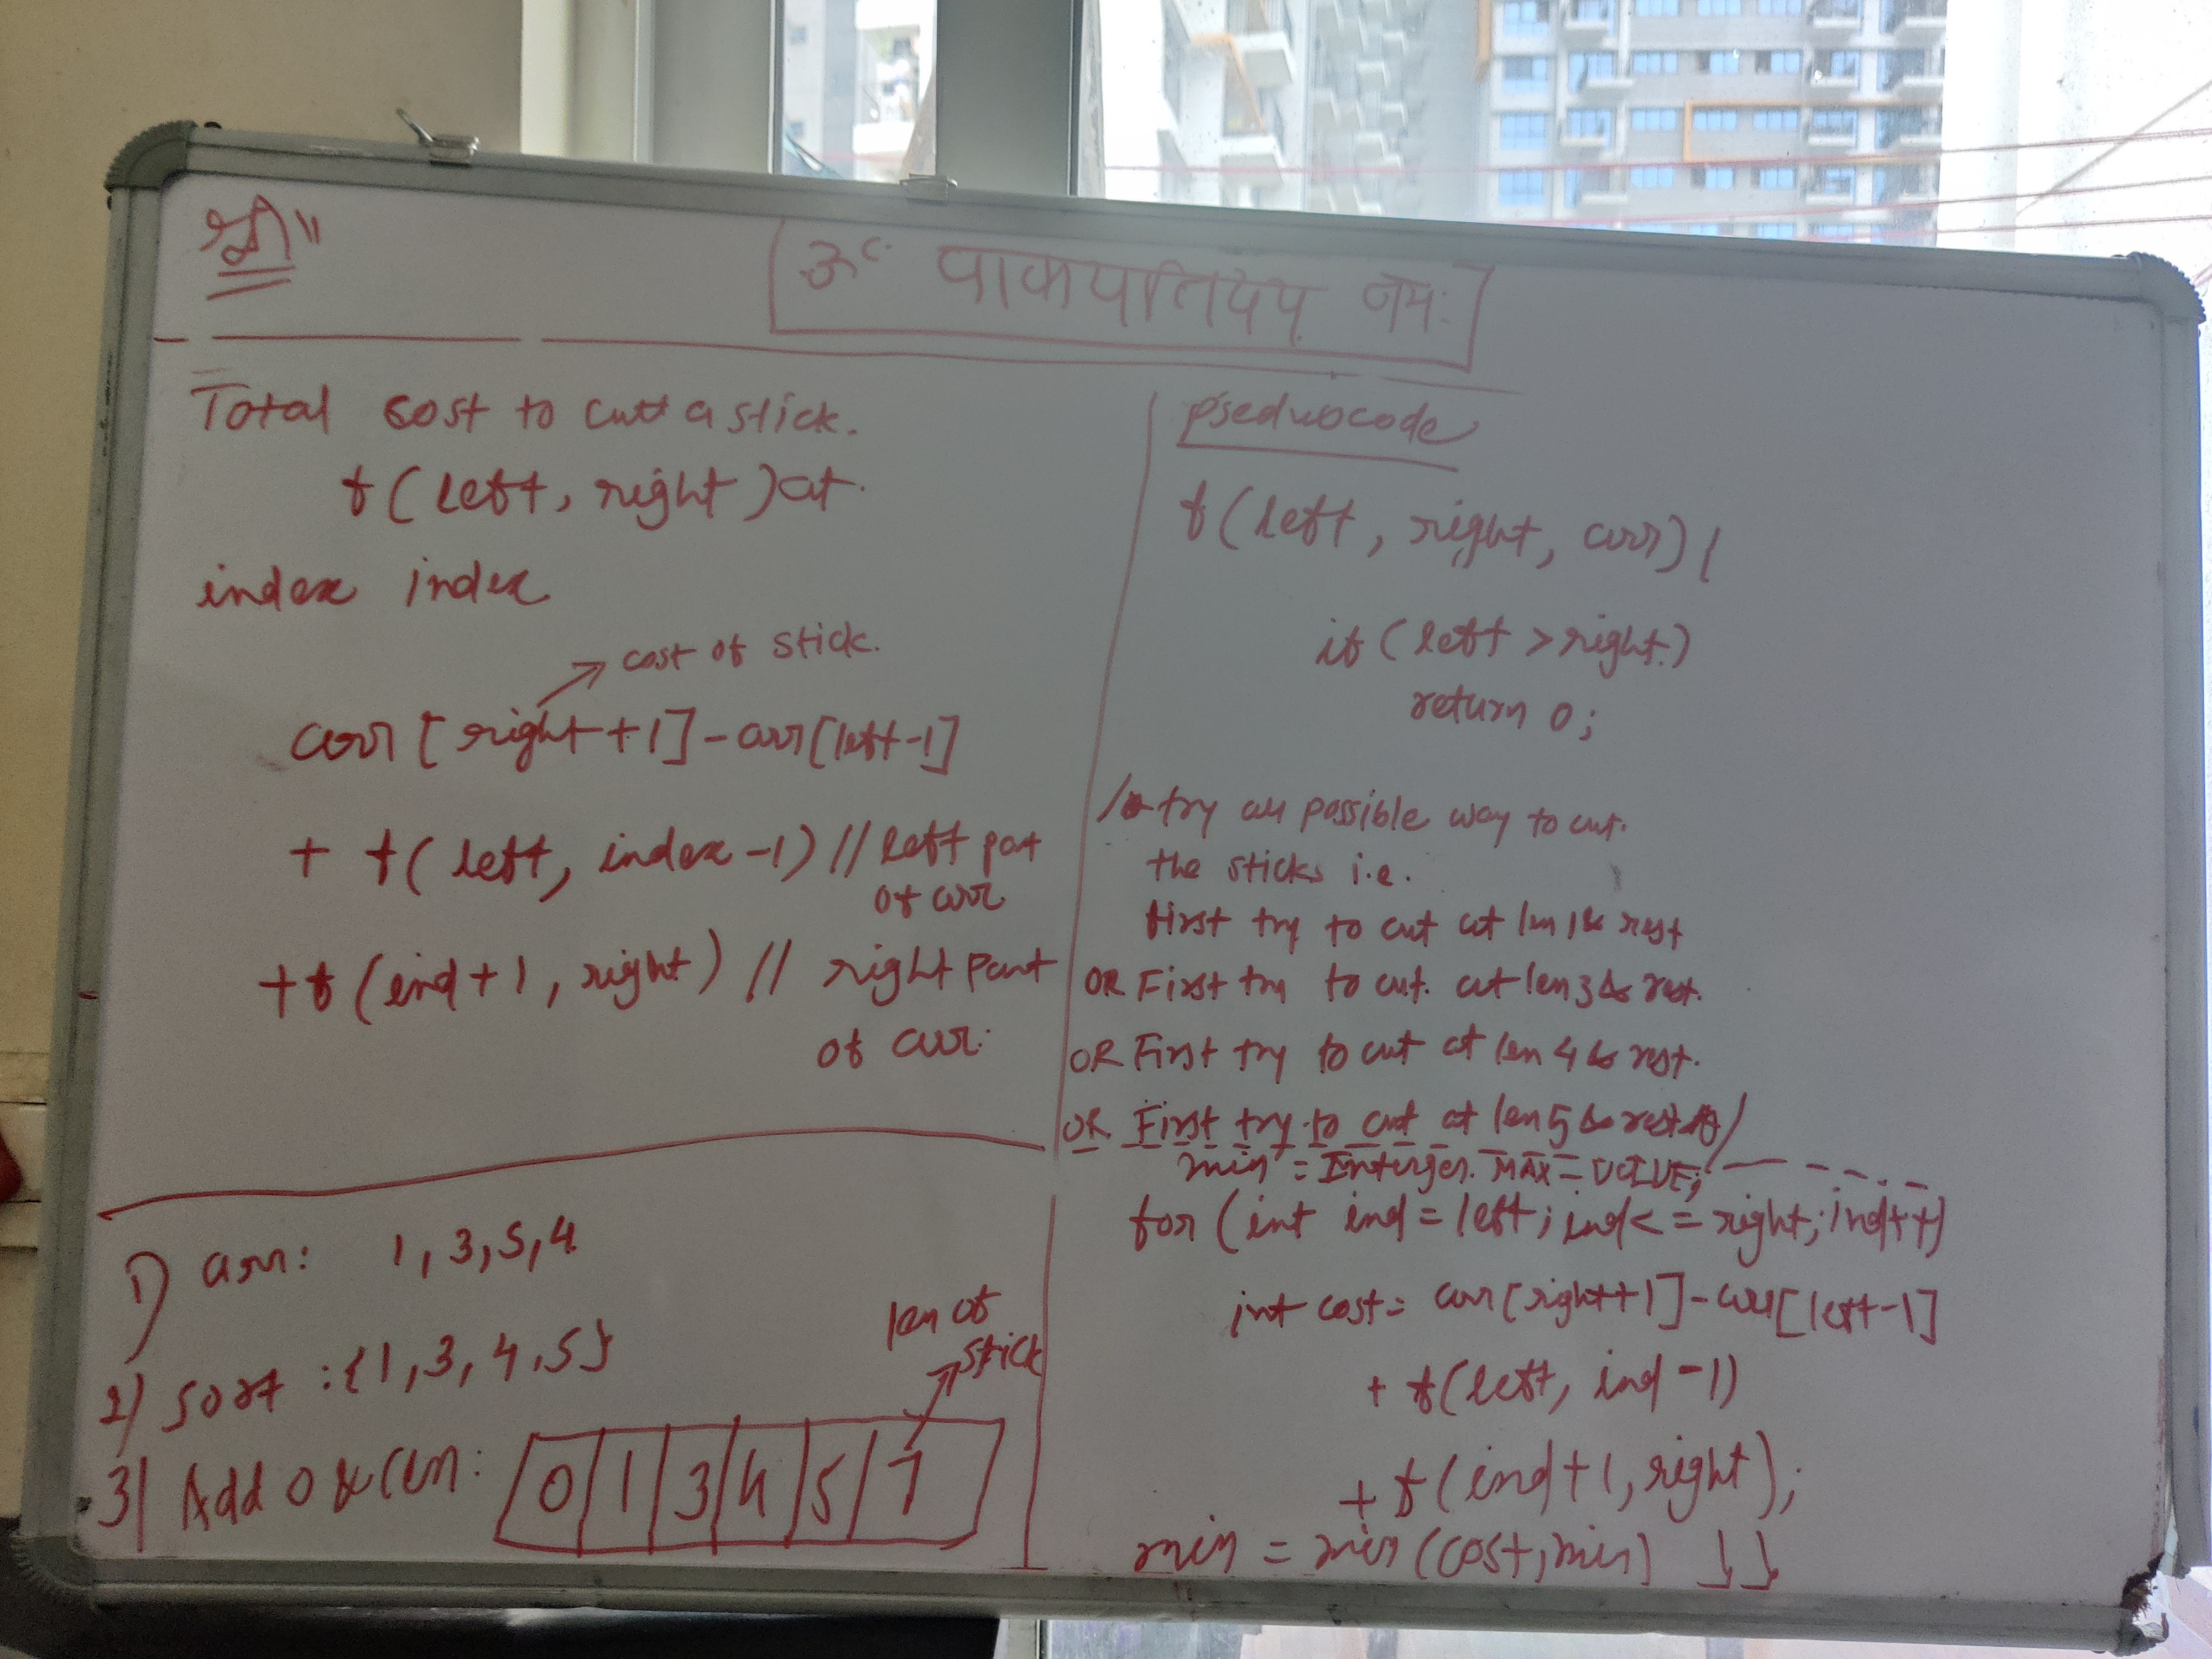 श्री॥
ॐ वाकपतियय नमः
Total cost to cutt a stick.
f(left, right) at
index index
cost of stick.
arr[right+1]-arr[left-1]
+ f(left, index-1) // left part
of arr
+f(ind+1, right) // right part
of arr.
1) arr: 1,3,5,4
2) sort :{1,3,4,5}
len of
stick
3) Add 0 & len: 0 1 3 4 5 7
pseduocode
f(left, right, arr){
if (left >right)
return 0;
/* try all possible way to cut.
the sticks i.e.
first try to cut at len 1 & rest
OR First try to cut. at len 3 & rest.
OR First try to cut at len 4 & rest.
OR First try to cut at len 5 & rest */
min = Enterger.MAX_VALUE;
for (int ind=left; ind<=right; ind++)
int cost= arr[right+1]-arr[left-1]
+ f(left, ind-1)
+ f(ind+1, right);
min = min(cost,min) }}